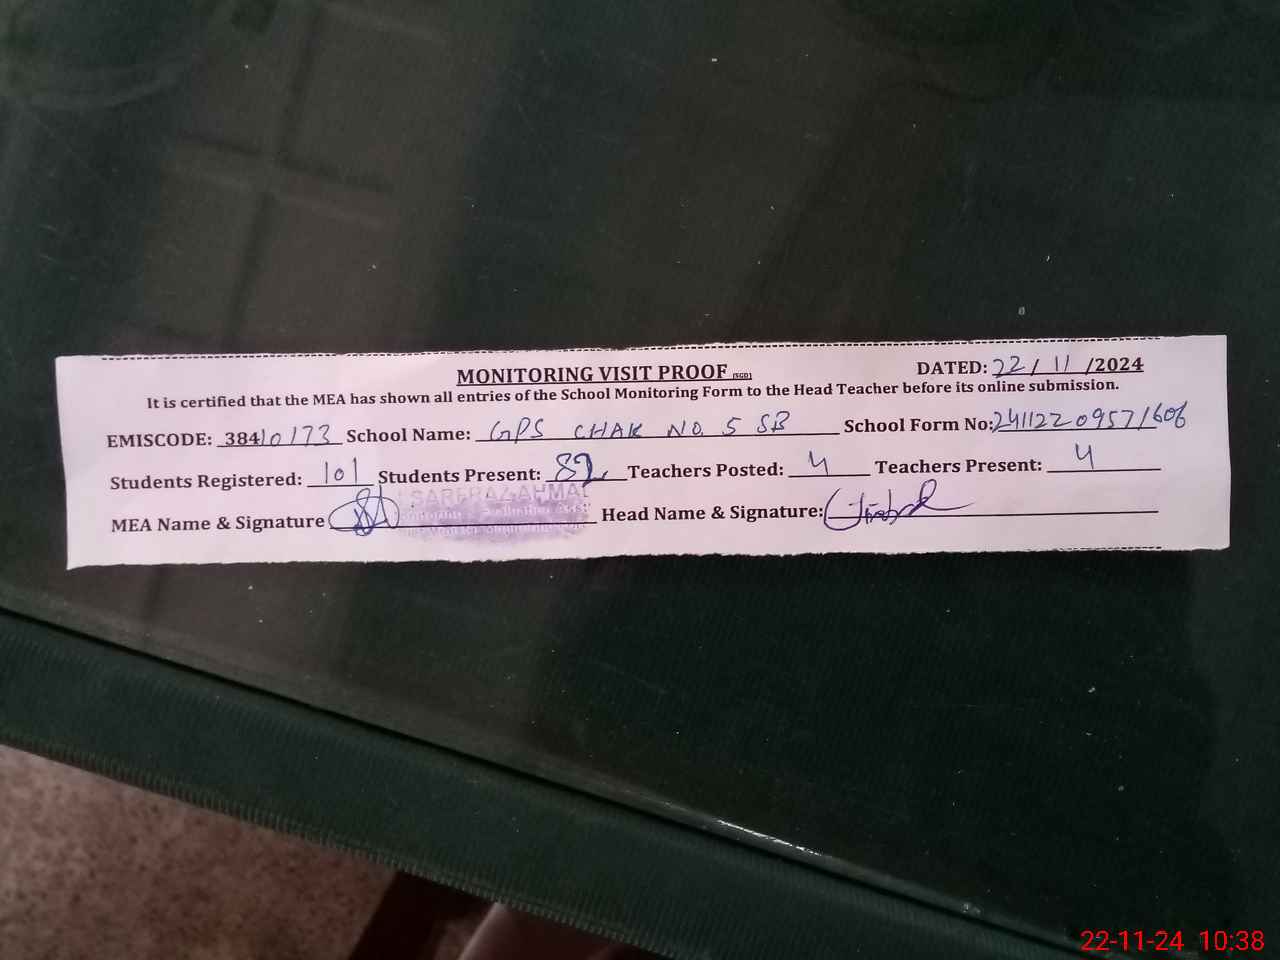 MONITORING VISIT PROOF (SGD)
DATED: 22/11/2024
It is certified that the MEA has shown all entries of the School Monitoring Form to the Head Teacher before its online submission.
EMISCODE: 38410173 School Name: GPS CHAK NO. 5 SB School Form No: 2411220957/606
Students Registered: 101 Students Present: 82 Teachers Posted: 4 Teachers Present: 4
MEA Name & Signature SARFRAZ AHMAD Head Name & Signature:
22-11-24 10:38